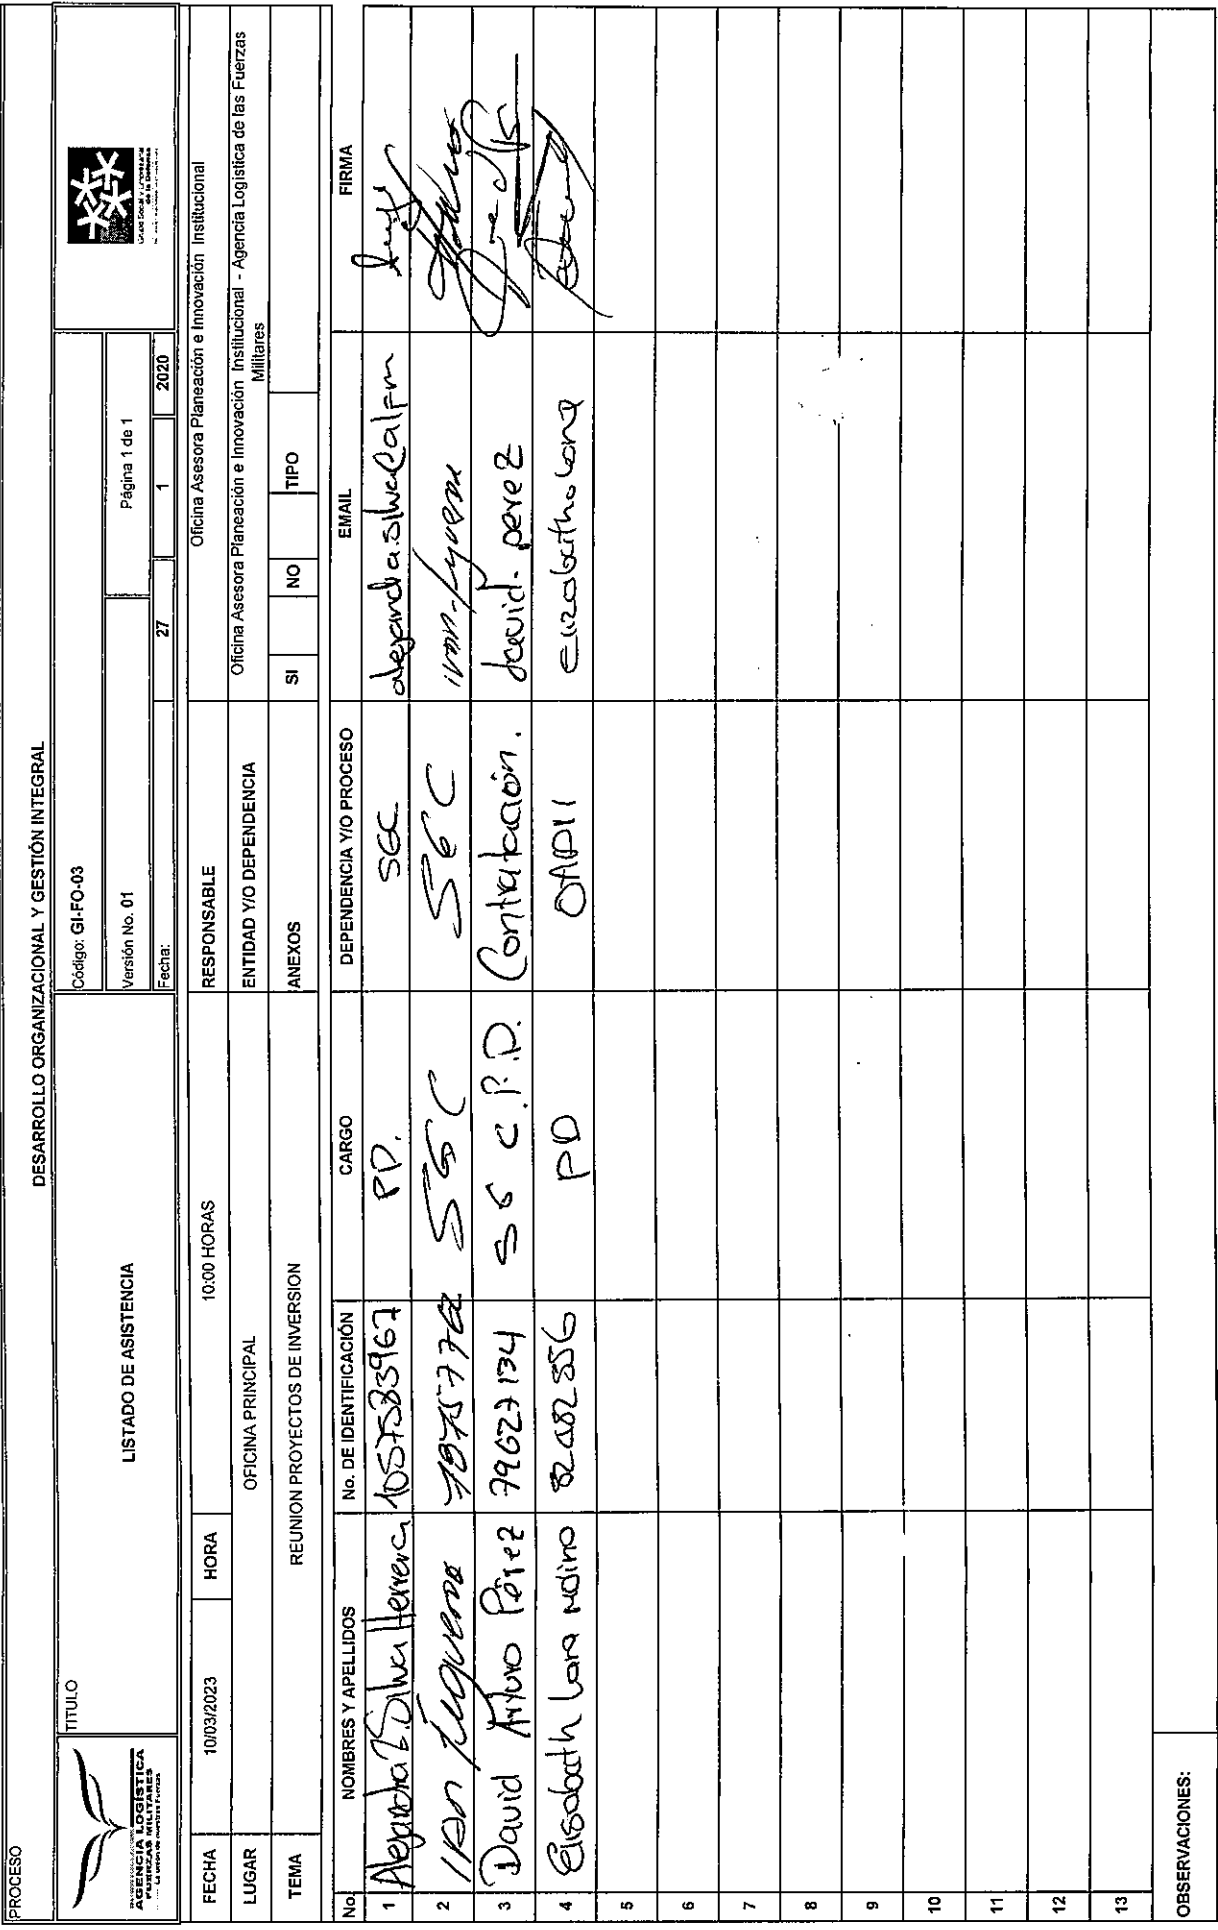 PROCESO
DESARROLLO ORGANIZACIONAL Y GESTIÓN INTEGRAL
AGENCIA LOGÍSTICA
FUERZAS MILITARES
TITULO
LISTADO DE ASISTENCIA
Código: GI-FO-03
Versión No. 01
Página 1 de 1
Fecha: 27 1 2020
FECHA 10/03/2023 HORA 10:00 HORAS RESPONSABLE Oficina Asesora Planeación e Innovación Institucional
LUGAR OFICINA PRINCIPAL ENTIDAD Y/O DEPENDENCIA Oficina Asesora Planeación e Innovación Institucional - Agencia Logistica de las Fuerzas
Militares
TEMA REUNION PROYECTOS DE INVERSION ANEXOS SI NO TIPO
No. NOMBRES Y APELLIDOS No. DE IDENTIFICACIÓN CARGO DEPENDENCIA Y/O PROCESO EMAIL FIRMA
1 Silva Herrera 1057583967 PD. SGC
2 SGC SGC
3 David Arturo Pérez 79627134 Contratación. david.perez
4 Elisabeth Lara PD OAPII
5
6
7
8
9
10
11
12
13
OBSERVACIONES: